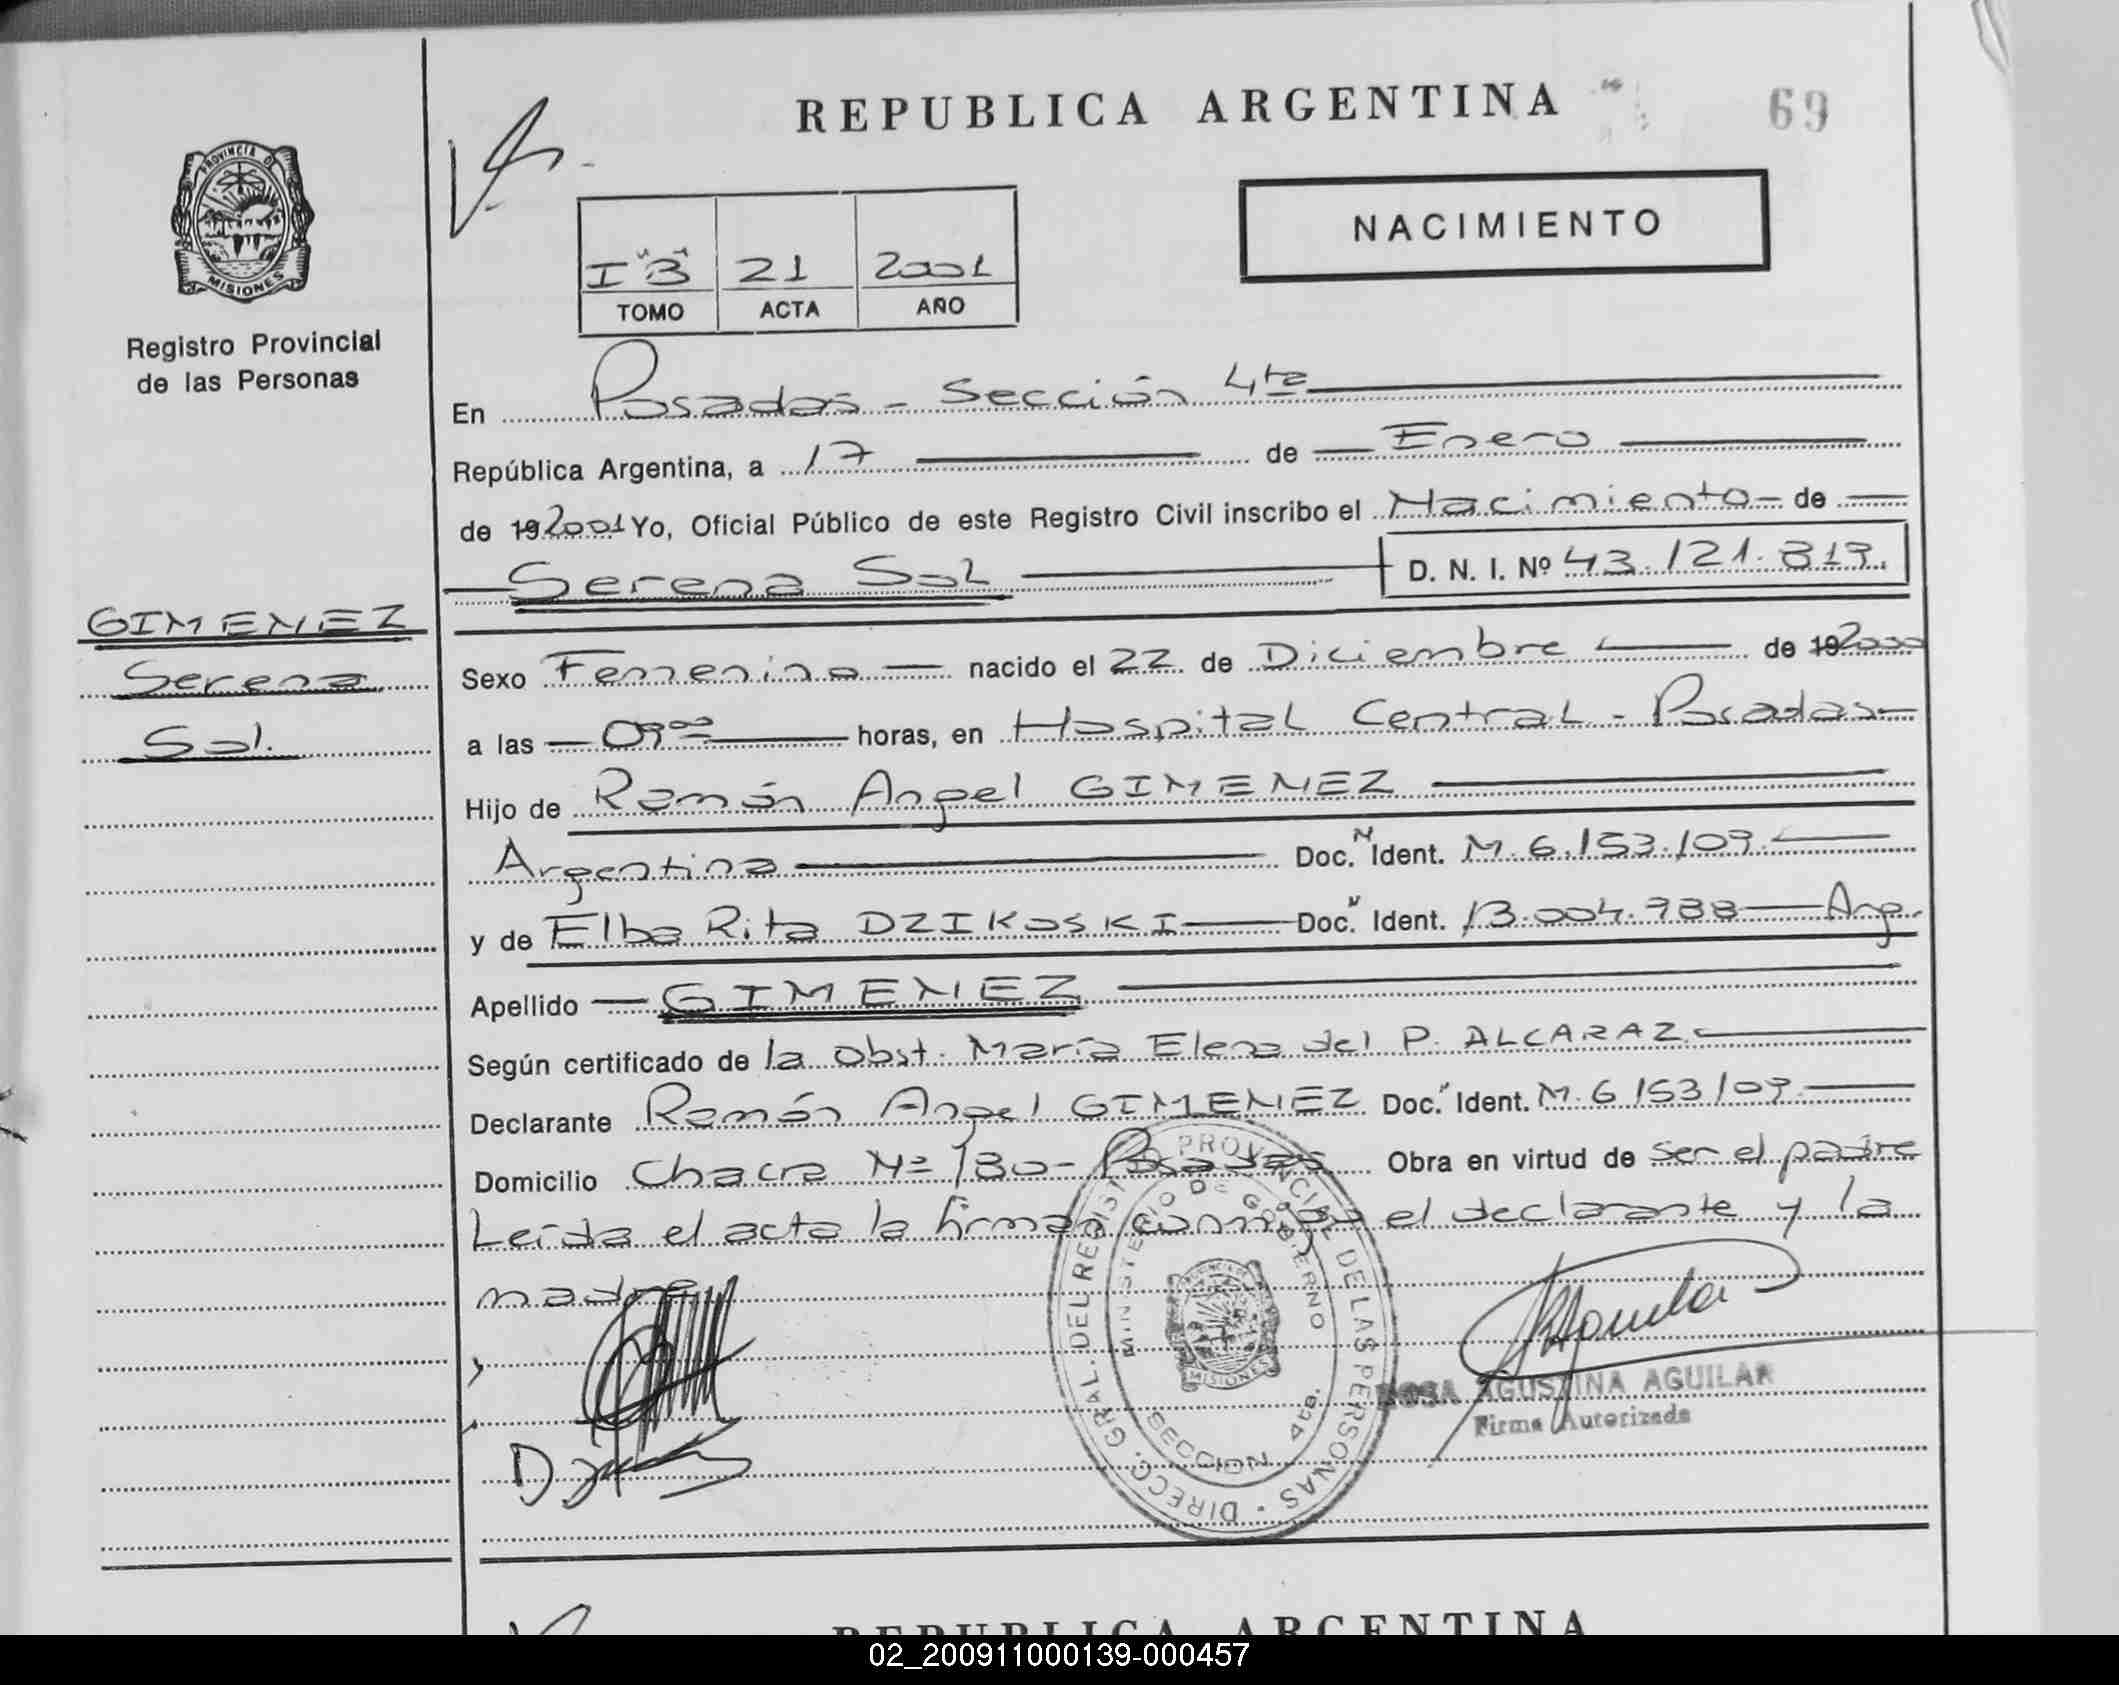 REPUBLICA ARGENTINA
69
NACIMIENTO
I "B" 21 2001
TOMO ACTA AÑO
PROVINCIA DE
MISIONES
Registro Provincial
de las Personas
En Posadas - Sección 4ta
República Argentina, a 17 de Enero
de 19 2001 Yo, Oficial Público de este Registro Civil inscribo el Nacimiento de
Serena Sol D. N. I. Nº 43.121.819.
GIMENEZ
Serena
Sol.
Sexo Femenino nacido el 22 de Diciembre de 19 2000
a las 09 00 horas, en Hospital Central - Posadas
Hijo de Ramón Angel GIMENEZ
Argentina Doc. N Ident. M. 6.153.109
y de Elba Rita DZIKOSKI Doc. N Ident. 13.004.988 Arg.
Apellido GIMENEZ
Según certificado de la obst. María Elena del P. ALCARAZ
Declarante Ramón Angel GIMENEZ Doc. Ident. M. 6 153 109
Domicilio Chacra Nº 180 - Posadas Obra en virtud de ser el padre
Leída el acta la firman conmigo el declarante y la
madre
DIRECC. GRAL. DEL REGIST. PROVINCIAL DE LAS PERSONAS
MINISTERIO DE GOBIERNO
MISIONES
SECCION 4ta.
ROSA AGUSTINA AGUILAR
Firma Autorizada
REPUBLICA ARGENTINA
02_200911000139-000457